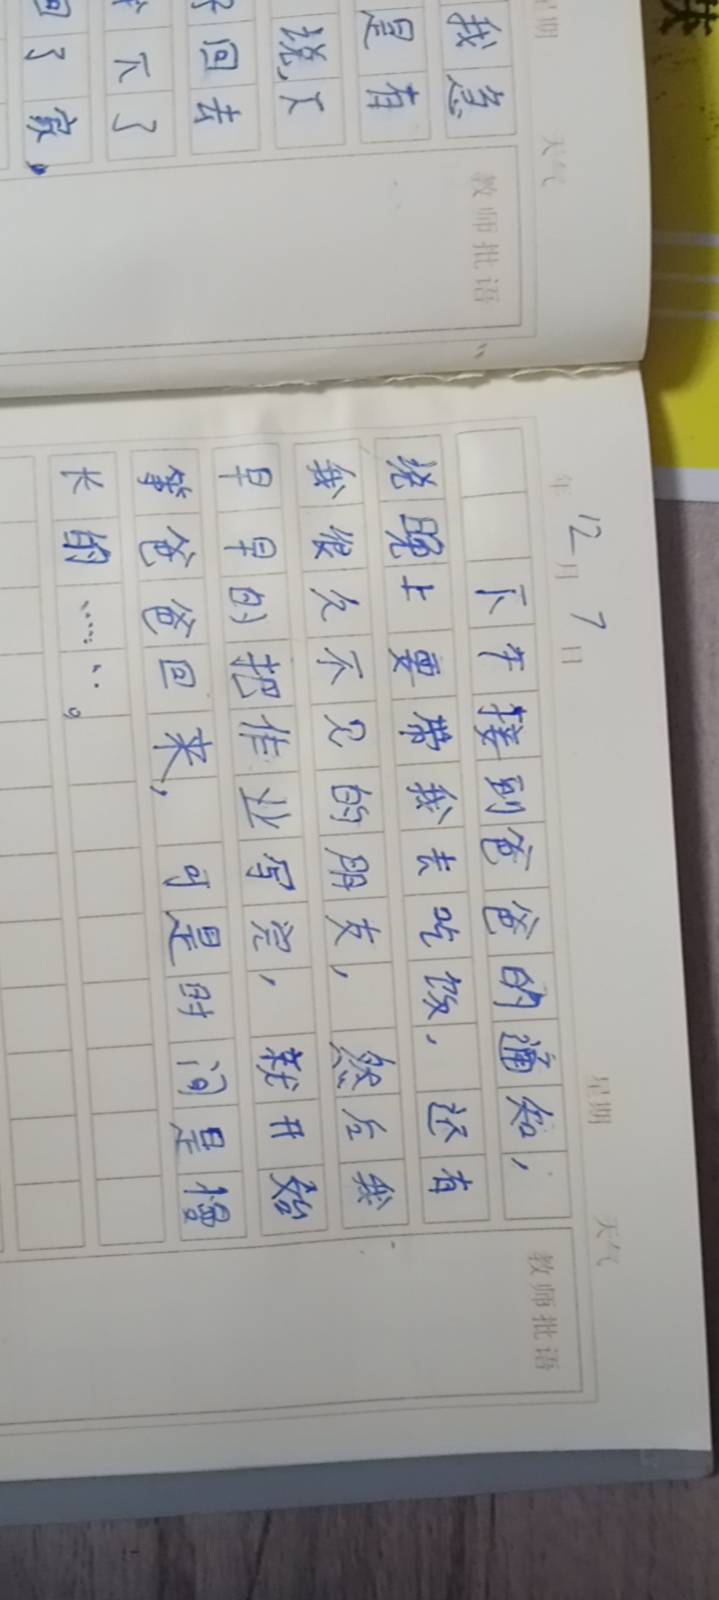 星期 天气
我急
是有
说，又
回去
不了
回了家。
教师批语
12月7日 星期 天气
下午接到爸爸的通知，
说晚上要带我去吃饭，还有
我很久不见的朋友，然后我
早早的把作业写完，就开始
等爸爸回来，可是时间是慢
长的……。
教师批语